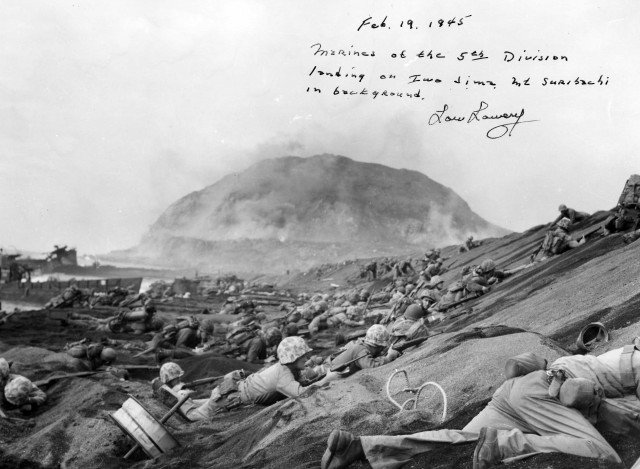 Feb. 19, 1945
Marines of the 5th Division
landing on Iwo Jima, Mt Suribachi
in background.
Lou Lowery